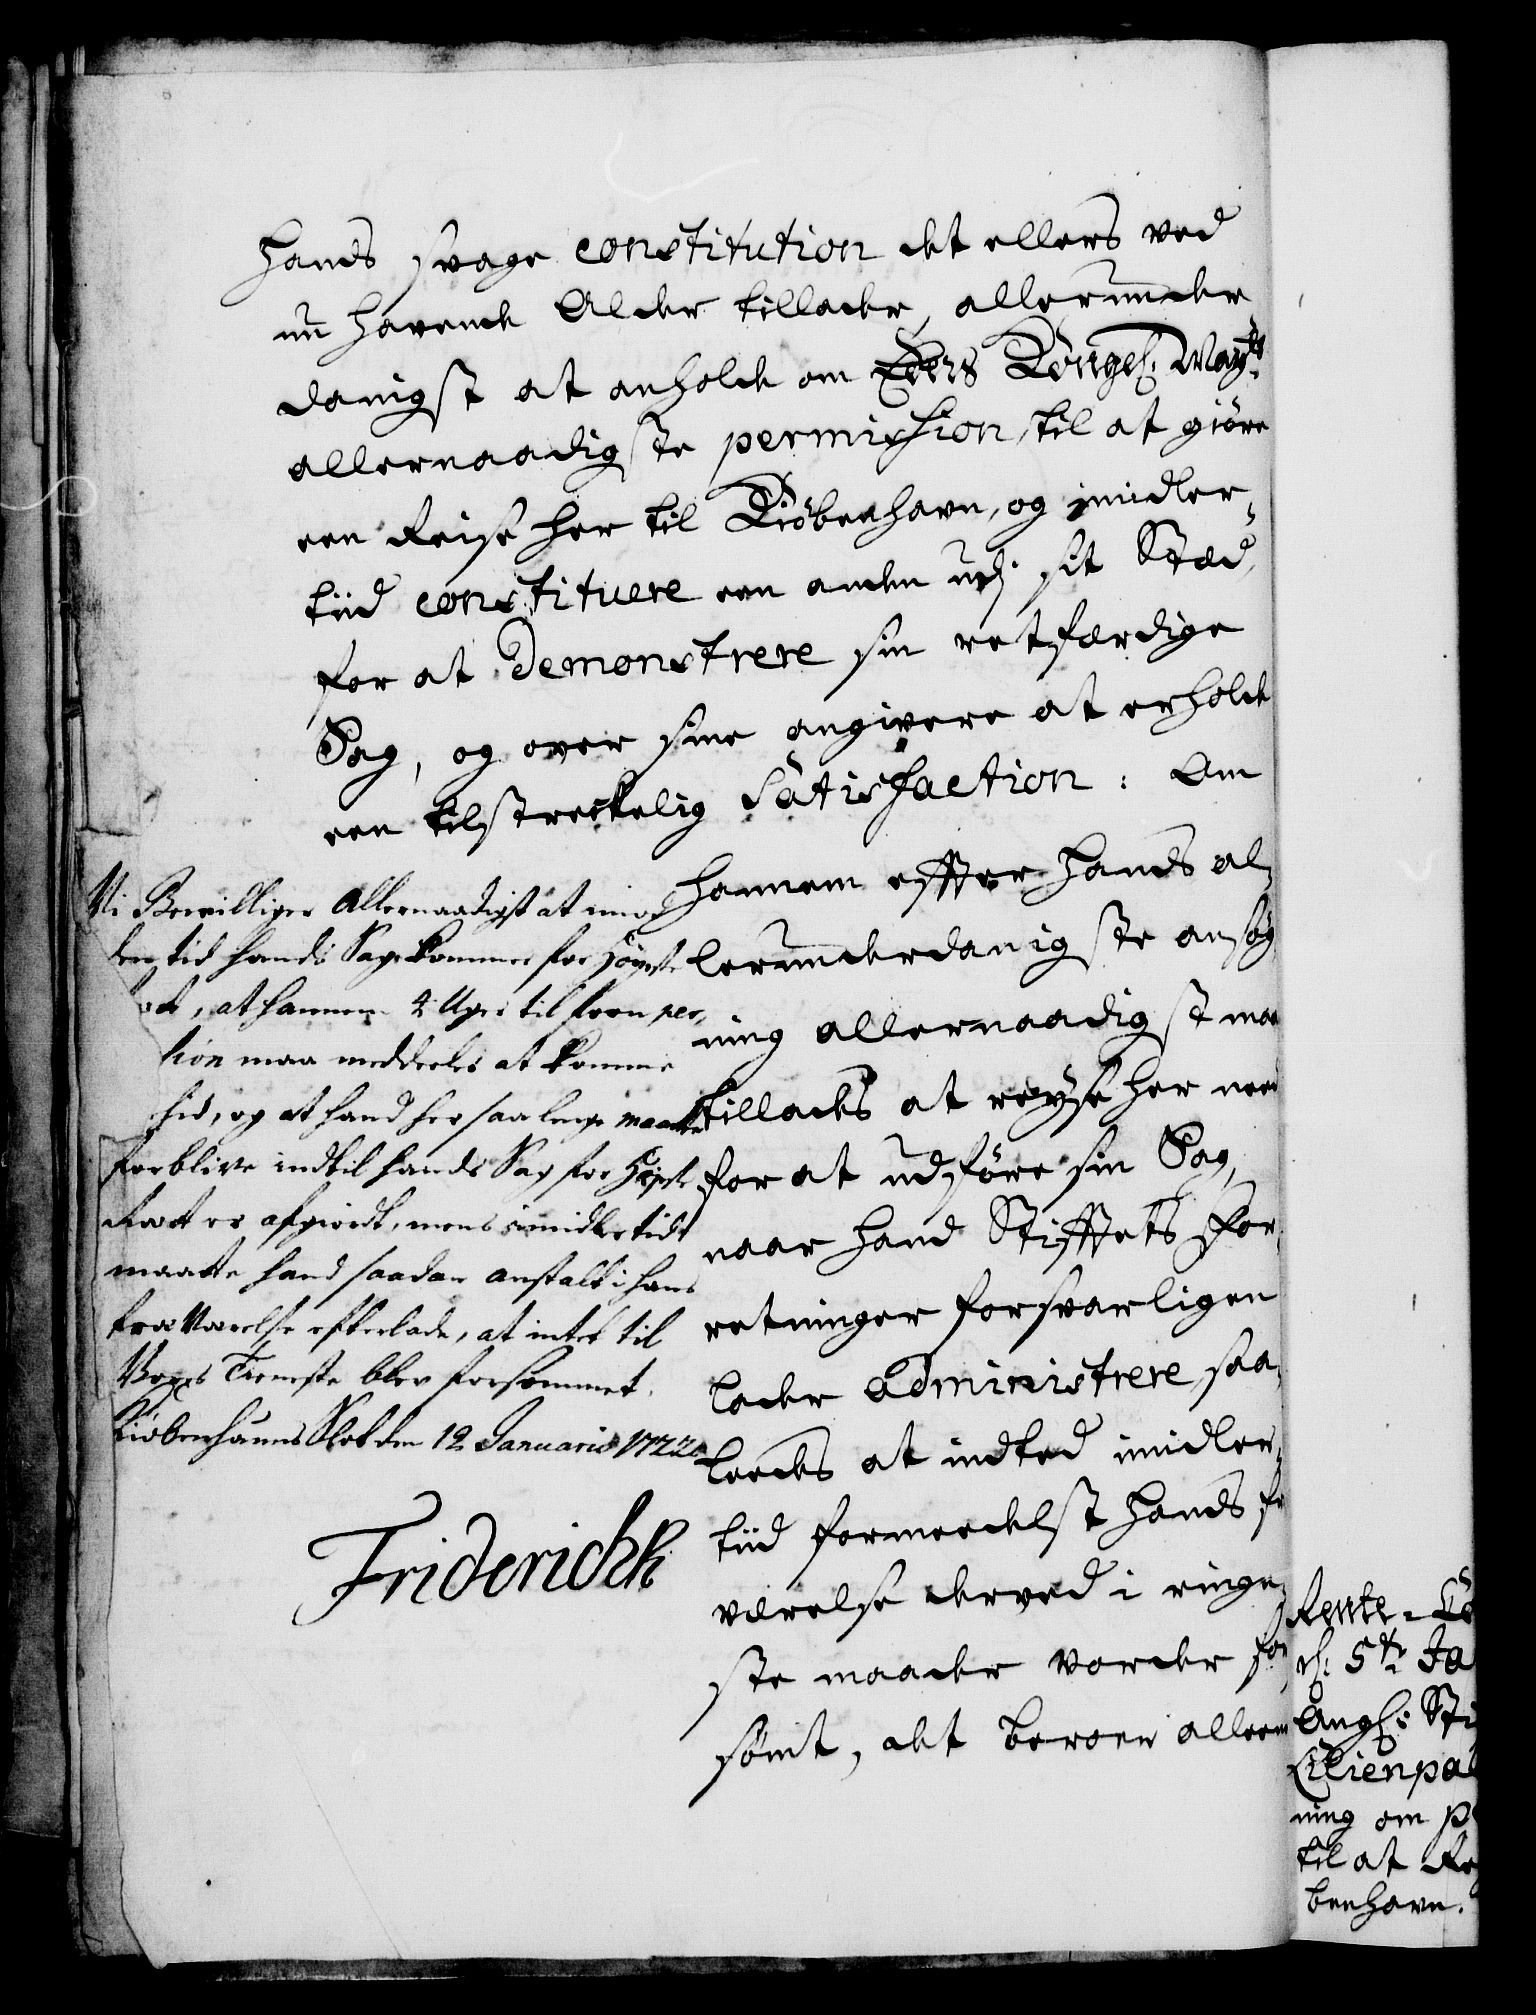 hands svage constitution det ellers ved
nu havende Alder tillader, allerunder
danigst at anholde om Eders Kongel: Mayts
allernaadigste permission, til at giöre
een Reise her til Kiöbenhavn, og imidler-
tiid constituere een anden udj sit Stæd,
for at Demonstrere sin retfærdige
Sag, og over sine angivere at erholde
een tilstreckelig Satisfaction: Om
hannem effter hands al-
lerunderdanigste ansög
ning allernaadigst maa
tillades at reyse her need
for at udföre sin Sag,
naar hand Stifftets For-
retninger forsvarligen
lader administrere, saa-
leedes at indted imidler-
tiid formeedelst hands fra
værelse derved i ringe-
ste maader vorder for
sömt, det beroer alleene
Vi Bevilliger Allernaadigst at imod
den tid hands Sag kommer for Höyeste
Ret, at hannem 4 Uger til forn per,
tion maa meddeeles at komme
hid, og at hand her saa lenge maatte
forblive indtil hands Sag for Höyeste
Rætt er afgiordt, mens imidlertidt
maatte hand saadan anstalt i hans
fraværelse efterlade, at intet til
Vores Tieneste blev forsömmet.
Kiöbenhauns Slot den 12 Januarij 1722
Friderich R
Rente-
d: 5te Ja
Angl: Sti
Lilienpal
ning om p
til at Re
benhavn.